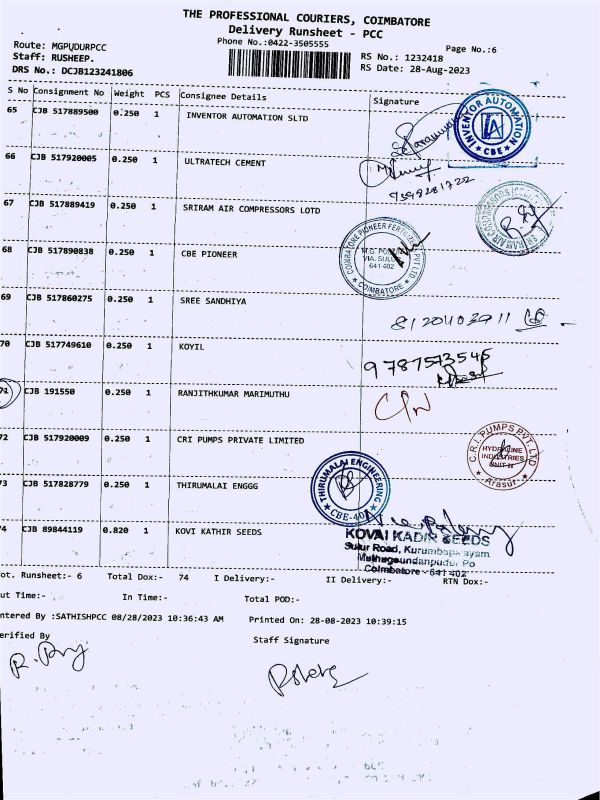 THE PROFESSIONAL COURIERS, COIMBATORE
Delivery Runsheet - PCC
Phone No.:0422-3505555
Page No.:6
Route: MGPUDURPCC
Staff: RUSHEEP.
DRS No.: DCJB123241806
RS No.: 1232418
RS Date: 28-Aug-2023
S No Consignment No Weight PCS Consignee Details Signature
65 CJB 517889500 0.250 1 INVENTOR AUTOMATION SLTD
INVENTOR AUTOMATION
IA
* CBE *
66 CJB 517920005 0.250 1 ULTRATECH CEMENT
67 CJB 517889419 0.250 1 SRIRAM AIR COMPRESSORS LOTD
68 CJB 517890838 0.250 1 CBE PIONEER
641 402
* COIMBATORE *
69 CJB 517860275 0.250 1 SREE SANDHIYA
70 CJB 517749610 0.250 1 KOYIL
9787573545
71 CJB 191550 0.250 1 RANJITHKUMAR MARIMUTHU
72 CJB 517920009 0.250 1 CRI PUMPS PRIVATE LIMITED
C.R.I. PUMPS PVT. LTD
HYDROLINE
INDUSTRIES
UNIT II
* Arasur *
73 CJB 517828779 0.250 1 THIRUMALAI ENGGG
THIRUMALAI ENGINEERING
74 CJB 89844119 0.820 1 KOVI KATHIR SEEDS
KOVAI KADIR SEEDS
Sulur Road, Kurumbapalayam
Muthugoundanpudur Po
Coimbatore - 641 402
Tot. Runsheet:- 6 Total Dox:- 74 I Delivery:- II Delivery:- RTN Dox:-
Out Time:- In Time:- Total POD:-
Entered By :SATHISHPCC 08/28/2023 10:36:43 AM Printed On: 28-08-2023 10:39:15
Verified By Staff Signature